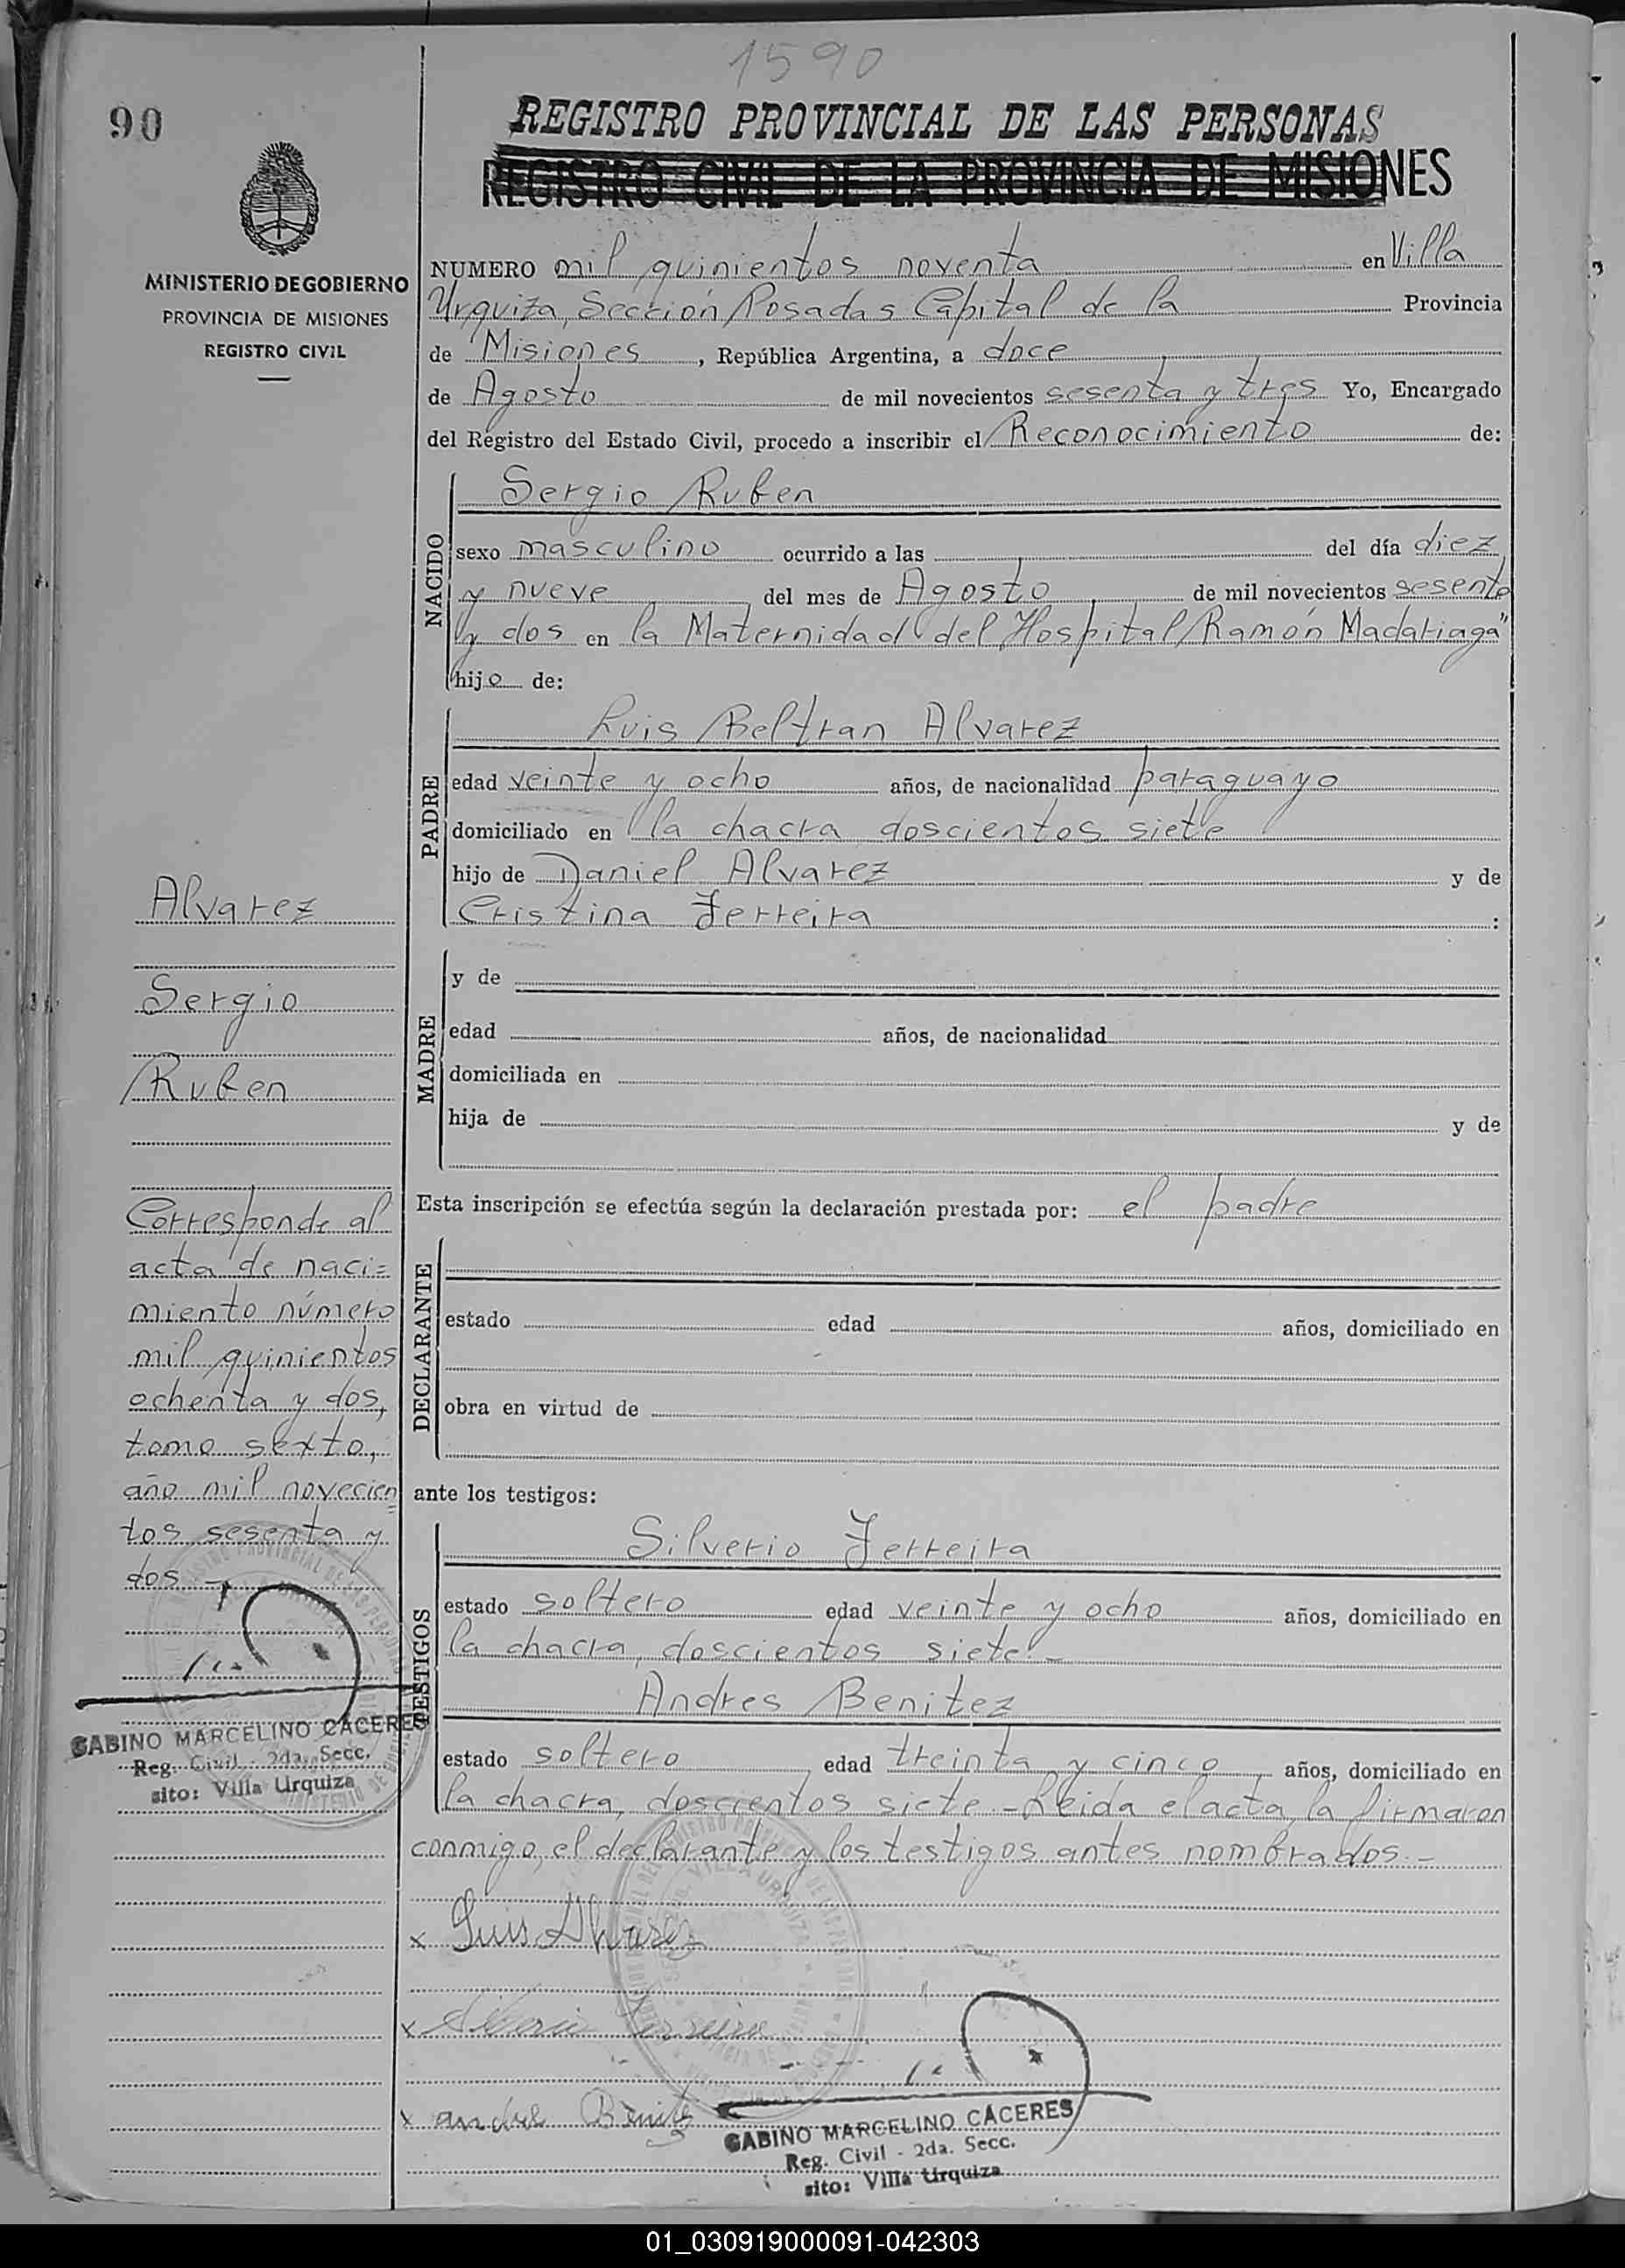 1590
90
REGISTRO PROVINCIAL DE LAS PERSONAS
REGISTRO CIVIL DE LA PROVINCIA DE MISIONES
MINISTERIO DE GOBIERNO
PROVINCIA DE MISIONES
REGISTRO CIVIL
NUMERO mil quinientos noventa en Villa
Urquiza, Sección Posadas Capital de la Provincia
de Misiones, República Argentina, a doce
de Agosto de mil novecientos sesenta y tres Yo, Encargado
del Registro del Estado Civil, procedo a inscribir el Reconocimiento de:
NACIDO
Sergio Ruben
sexo masculino ocurrido a las del día diez
y nueve del mes de Agosto de mil novecientos sesenta
y dos en la Maternidad del Hospital "Ramón Madariaga"
hijo de:
PADRE
Luis Beltran Alvarez
edad veinte y ocho años, de nacionalidad paraguayo
domiciliado en la chacra doscientos siete
hijo de Daniel Alvarez y de
Cristina Ferreira :
MADRE
y de
edad años, de nacionalidad
domiciliada en
hija de y de
Esta inscripción se efectúa según la declaración prestada por: el padre
DECLARANTE
estado edad años, domiciliado en
obra en virtud de
ante los testigos:
TESTIGOS
Silverio Ferreira
estado soltero edad veinte y ocho años, domiciliado en
la chacra, doscientos siete.-
Andres Benitez
estado soltero edad treinta y cinco años, domiciliado en
la chacra, doscientos siete.-Leida el acta, la firmaron
conmigo, el declarante y los testigos antes nombrados.-
x Luis Alvarez
x Silverio Ferreira
x Andres Benitez
GABINO MARCELINO CÁCERES
Reg. Civil - 2da. Secc.
sito: Villa Urquiza
Alvarez
Sergio
Ruben
Corresponde al
acta de naci=
miento número
mil quinientos
ochenta y dos,
tomo sexto,
año mil novecien=
tos sesenta y
dos.-
GABINO MARCELINO CÁCERES
Reg. Civil - 2da. Secc.
sito: Villa Urquiza
01_030919000091-042303